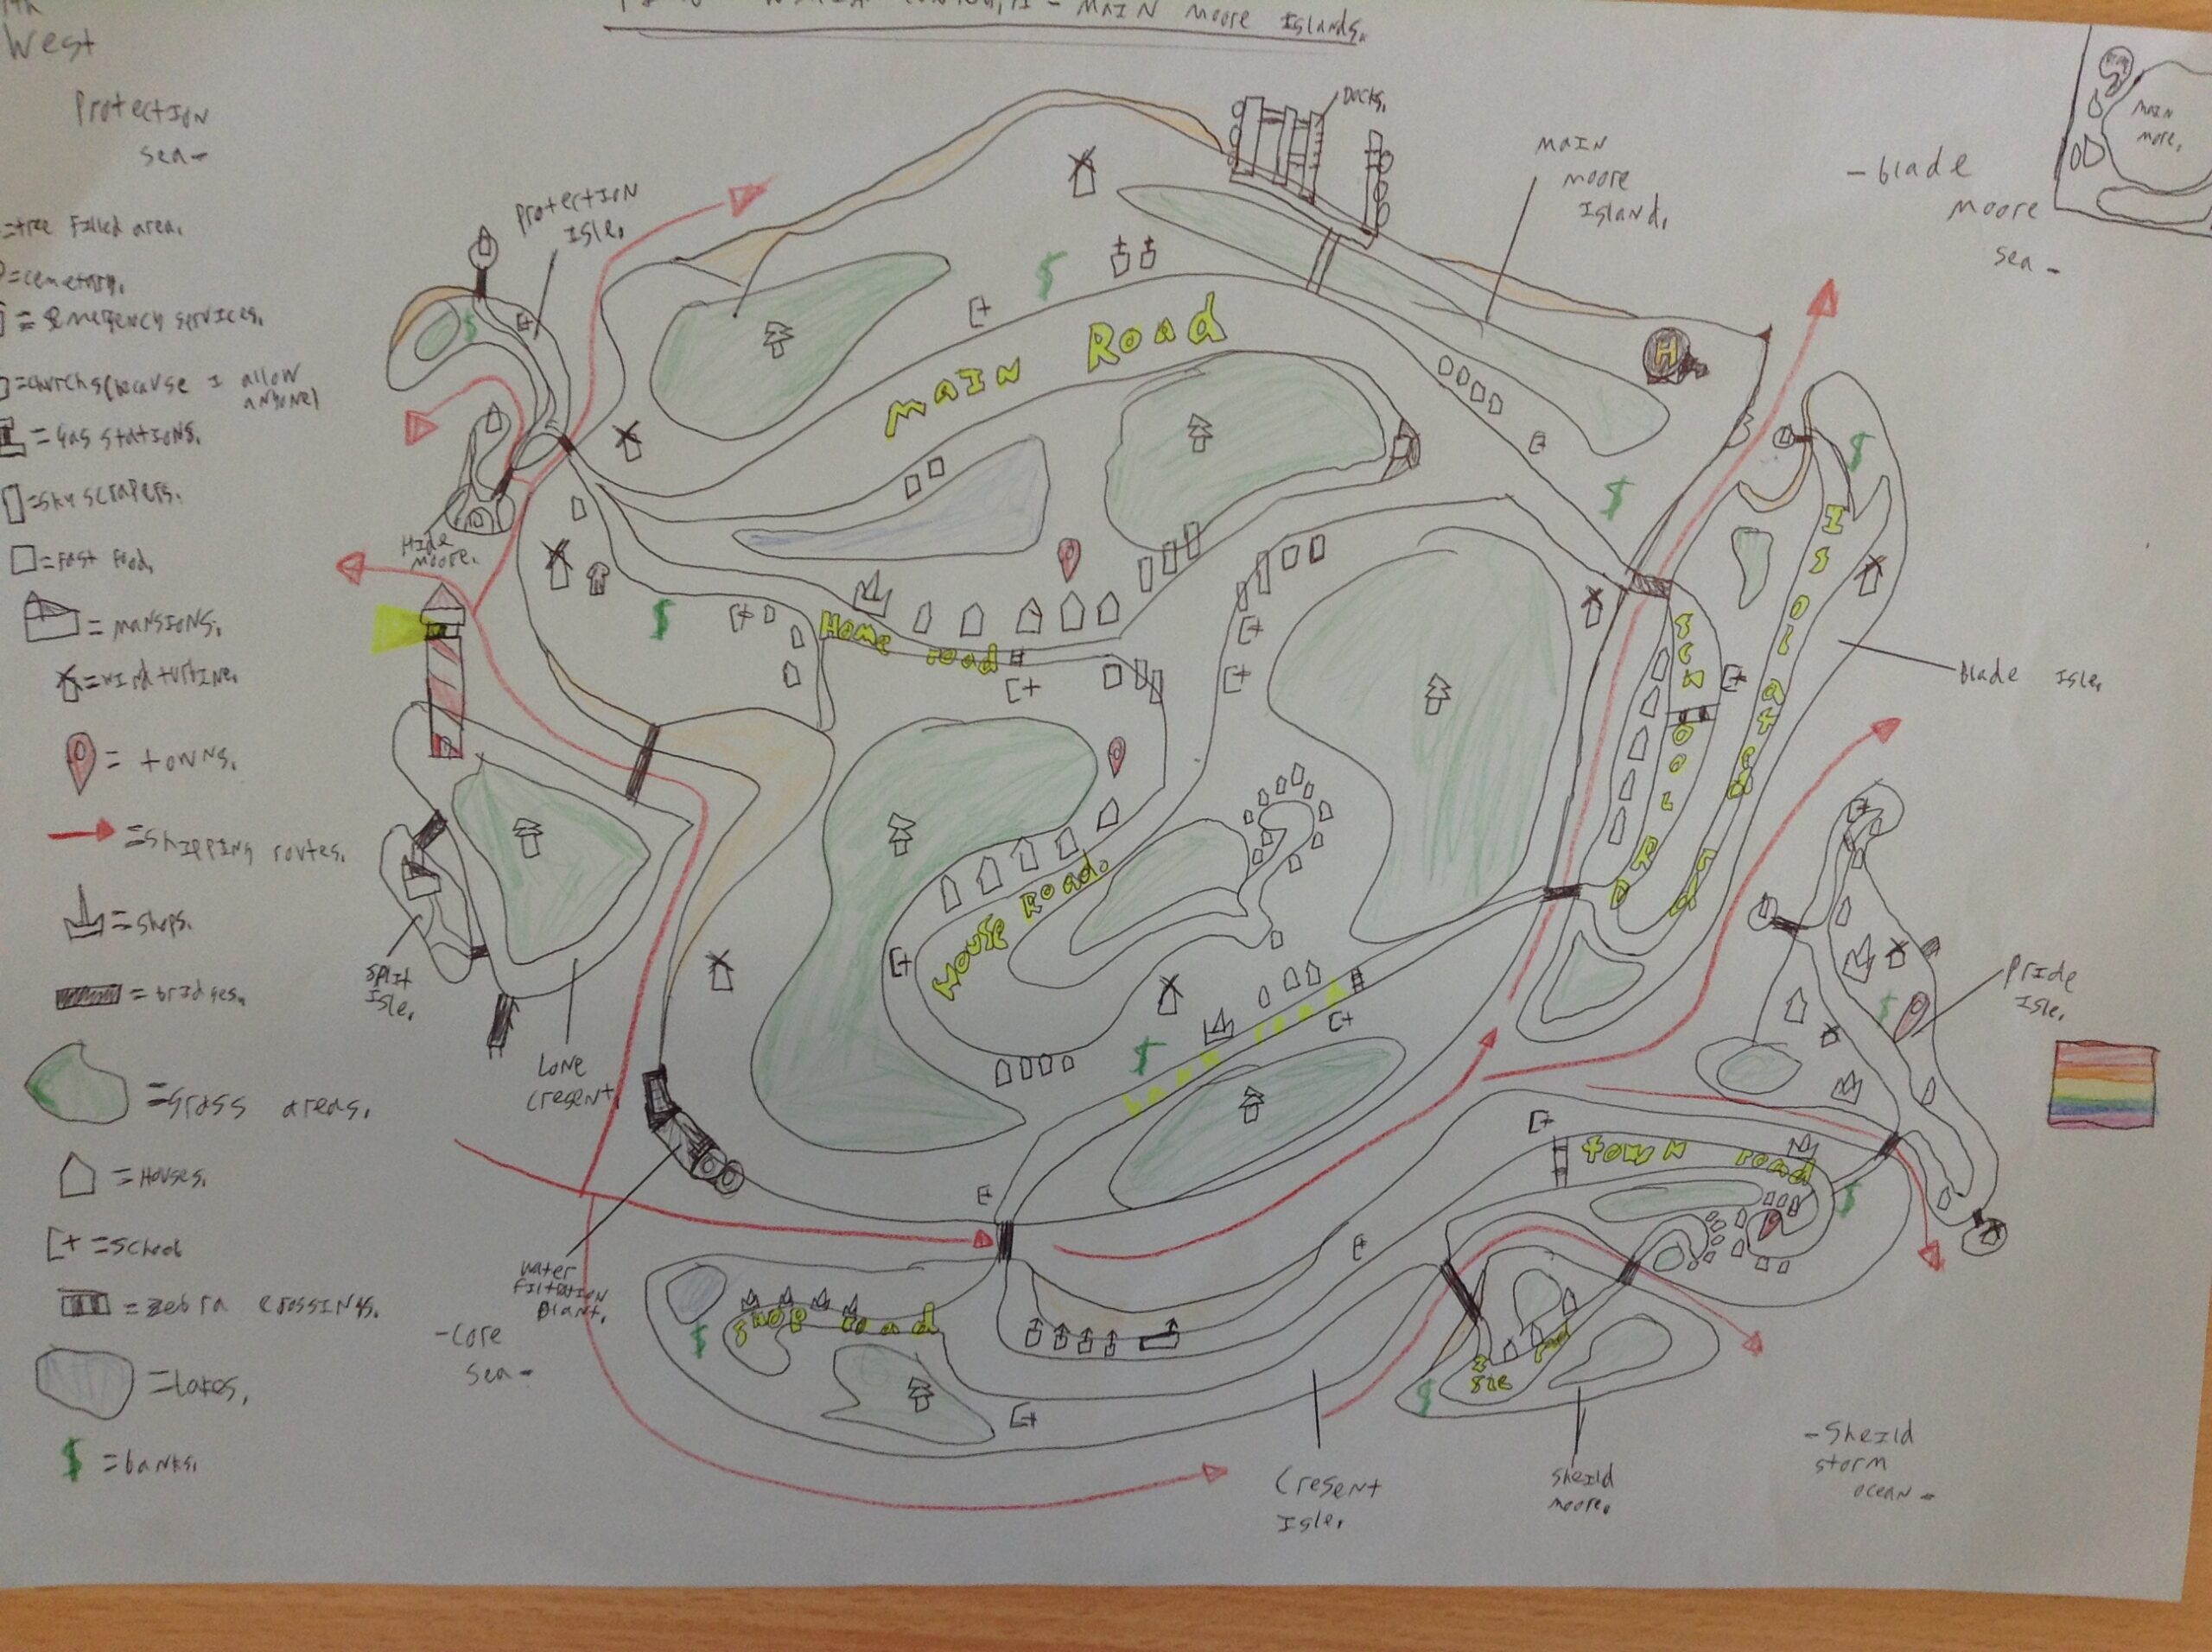 West
- MAIN Moore Islands.
Protection
sea-
=tree Filled area.
=cemetary.
= Emergency services.
=churchs(because I allow
anyone)
= Gas stations.
=sky scrapers.
=Fast food.
= MANSIONS.
=wind turbine.
= towns.
=Shipping routes.
=shops.
= bridges.
=Grass areas.
= Houses.
[+ =School
= zebra crossings.
=Lakes.
$ =banks.
Protection
Isle.
Docks.
MAIN
Moore
Island.
-blade
Moore
sea-
MAIN
more.
MAIN Road
H
Hide
Moore.
Home road
House Road.
SCHOOL RD
Isolated rd
blade Isle.
Split
Isle.
Lone
Cresent.
Pride
Isle.
Water
Filtration
Plant.
-Core
sea-
Shop road
town road
Isle
Cresent
Isle.
Sheild
Moore.
-Sheild
storm
ocean-